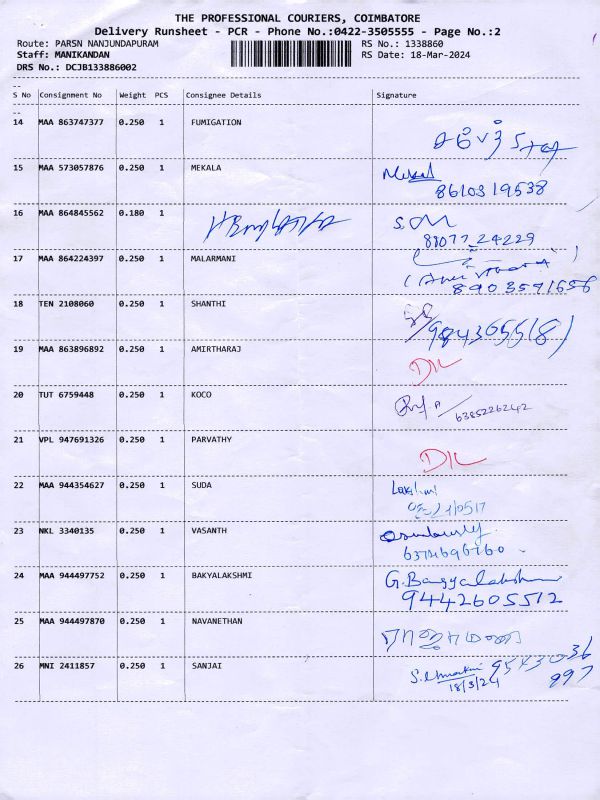 THE PROFESSIONAL COURIERS, COIMBATORE
Delivery Runsheet - PCR - Phone No.:0422-3505555 - Page No.:2
Route: PARSN NANJUNDAPURAM RS No.: 1338860
Staff: MANIKANDAN RS Date: 18-Mar-2024
DRS No.: DCJB133886002
S No Consignment No Weight PCS Consignee Details Signature
14 MAA 863747377 0.250 1 FUMIGATION
15 MAA 573057876 0.250 1 MEKALA Mekal
8610319538
16 MAA 864845562 0.180 1
88077 24229
17 MAA 864224397 0.250 1 MALARMANI
8903591656
18 TEN 2108060 0.250 1 SHANTHI
9843655181
19 MAA 863896892 0.250 1 AMIRTHARAJ
DL
20 TUT 6759448 0.250 1 KOCO
6385226242
21 VPL 947691326 0.250 1 PARVATHY
DL
22 MAA 944354627 0.250 1 SUDA Lakshmi
23 NKL 3340135 0.250 1 VASANTH
6374696760
24 MAA 944497752 0.250 1 BAKYALAKSHMI G. Bagyalakshmi
9442605512
25 MAA 944497870 0.250 1 NAVANETHAN
26 MNI 2411857 0.250 1 SANJAI 9543036
18/3/24 997